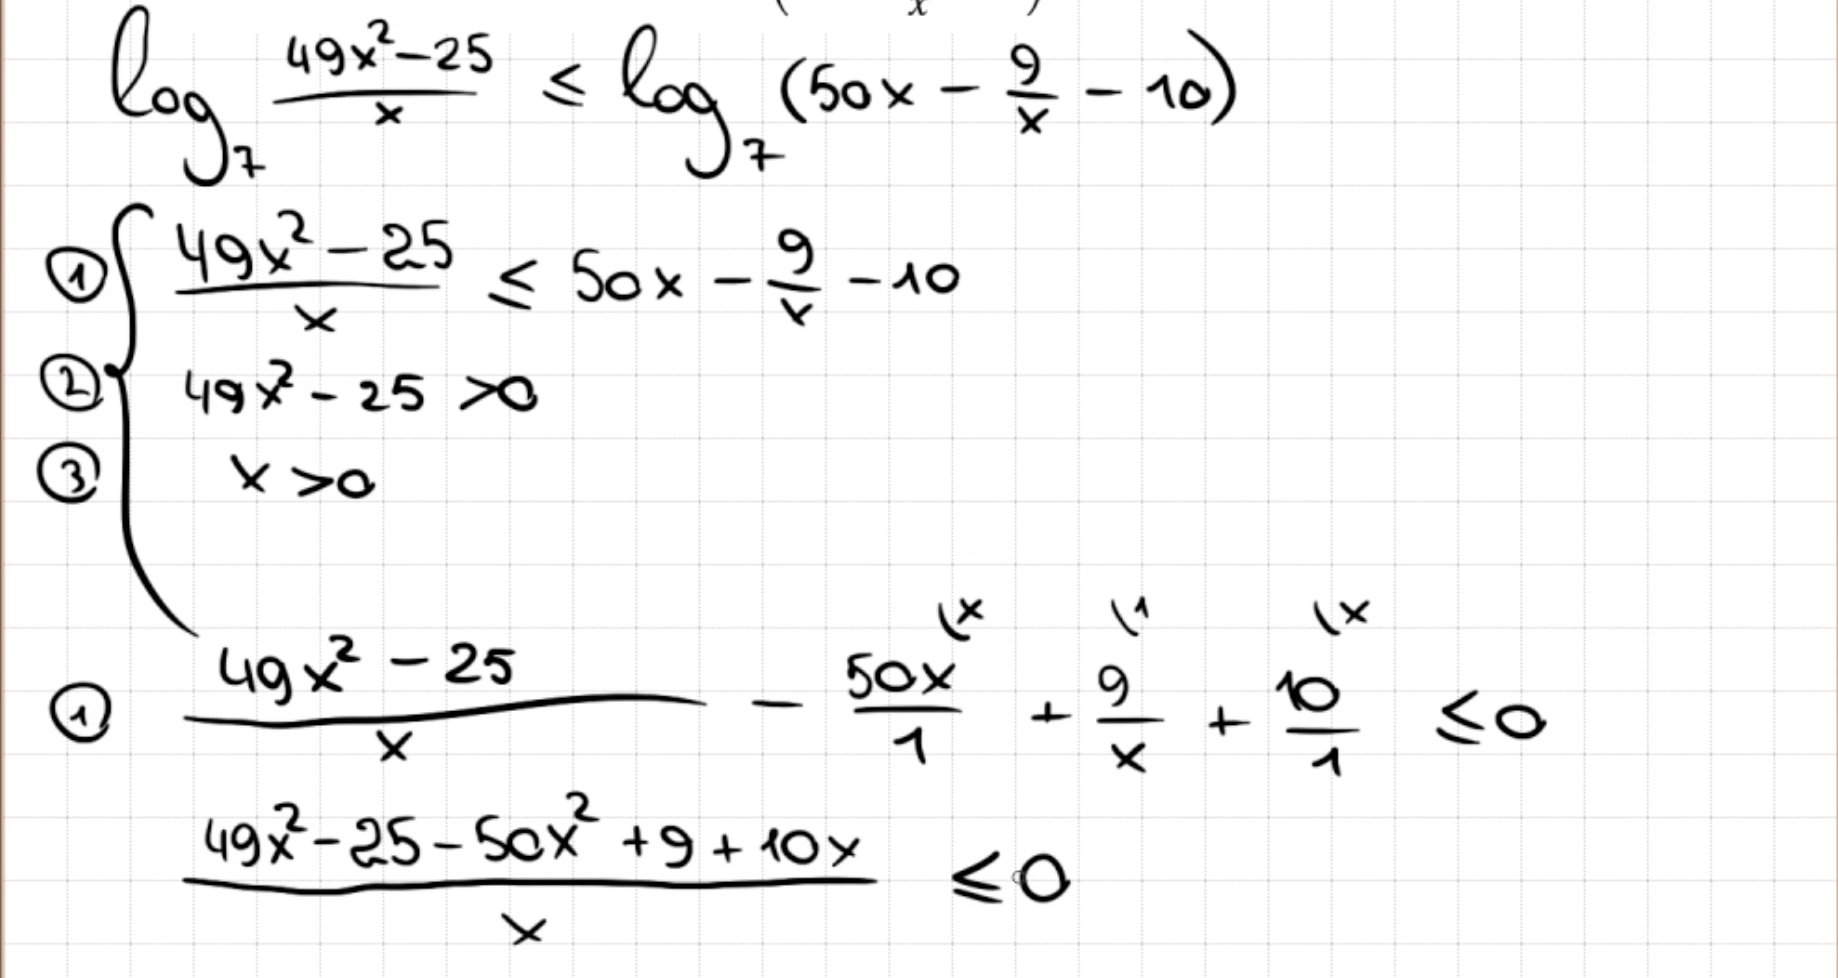 log₇ (49x² − 25)/x ≤ log₇ (50x − 9/x − 10)
① { (49x² − 25)/x ≤ 50x − 9/x − 10
② 49x² − 25 > 0
③ x > 0
(x (1 (x
① (49x² − 25)/x − 50x/1 + 9/x + 10/1 ≤ 0
(49x² − 25 − 50x² + 9 + 10x)/x ≤ 0